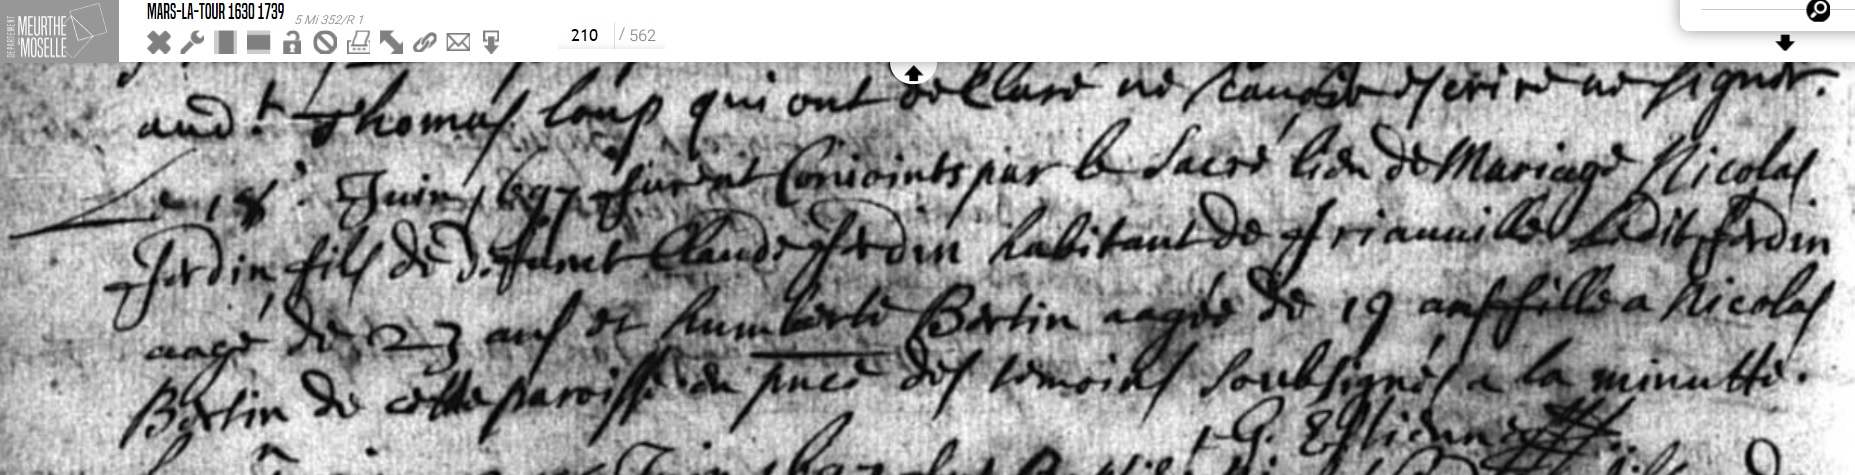 MARS-LA-TOUR 1630 1739
5 Mi 352/R 1
DÉPARTEMENT
MEURTHE
& MOSELLE
210 / 562
aud.t Thomas loup qui ont declaré ne sauoir escrire ne signer.
Le 18e Juin 1697 furent Conioints par le Sacré lien de Mariage Nicolas
Jerdin fils de defunct Claude Jerdin habitant de friauuille Ledit Jerdin
aagé de 23 ans et humberte Bertin aagée de 19 ans fille a Nicolas
Bertin de cette paroisse en pnce des temoins soubsignés a la minutte.
G. Estienne